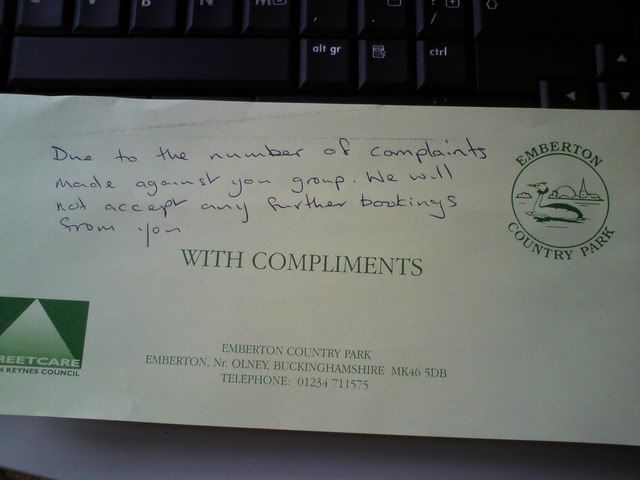 alt gr
ctrl
Due to the number of complaints
made against you group. We will
not accept any further bookings
from you
EMBERTON
COUNTRY PARK
WITH COMPLIMENTS
REETCARE
N KEYNES COUNCIL
EMBERTON COUNTRY PARK
EMBERTON, Nr. OLNEY, BUCKINGHAMSHIRE MK46 5DB
TELEPHONE: 01234 711575